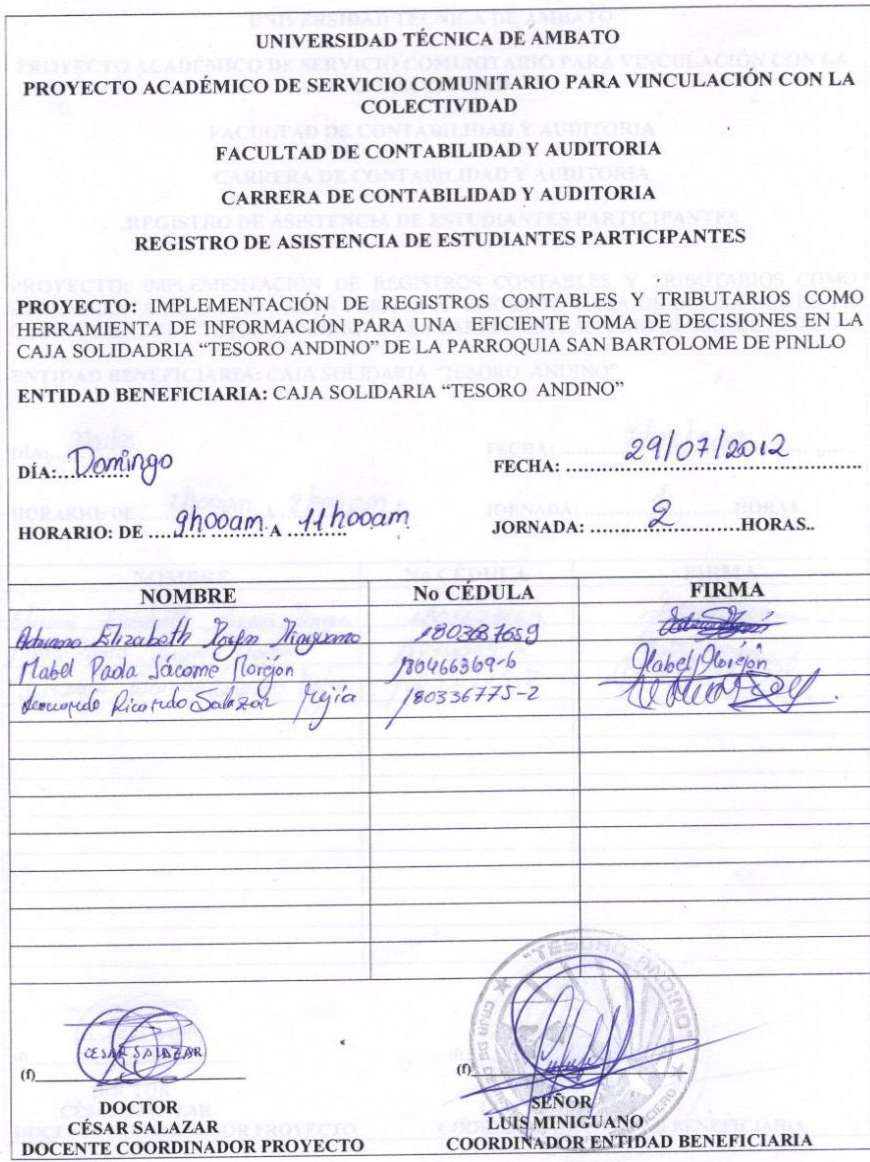 UNIVERSIDAD TÉCNICA DE AMBATO
PROYECTO ACADÉMICO DE SERVICIO COMUNITARIO PARA VINCULACIÓN CON LA
COLECTIVIDAD
FACULTAD DE CONTABILIDAD Y AUDITORIA
CARRERA DE CONTABILIDAD Y AUDITORIA
REGISTRO DE ASISTENCIA DE ESTUDIANTES PARTICIPANTES
PROYECTO: IMPLEMENTACIÓN DE REGISTROS CONTABLES Y TRIBUTARIOS COMO
HERRAMIENTA DE INFORMACIÓN PARA UNA EFICIENTE TOMA DE DECISIONES EN LA
CAJA SOLIDADRIA "TESORO ANDINO" DE LA PARROQUIA SAN BARTOLOME DE PINLLO
ENTIDAD BENEFICIARIA: CAJA SOLIDARIA "TESORO ANDINO"
DÍA: Domingo FECHA: 29/07/2012
HORARIO: DE 9h00am A 11h00am JORNADA: 2 HORAS..
NOMBRE No CÉDULA FIRMA
Elizabeth 1803687659
Mabel Paola Jácome Morejón 180466369-6 Mabel Morejón
Ricardo Salazar Mejía 180336775-2
"TESORO ANDINO"
CESAR SALAZAR
(f) (f)
DOCTOR SEÑOR
CÉSAR SALAZAR LUIS MINIGUANO
DOCENTE COORDINADOR PROYECTO COORDINADOR ENTIDAD BENEFICIARIA